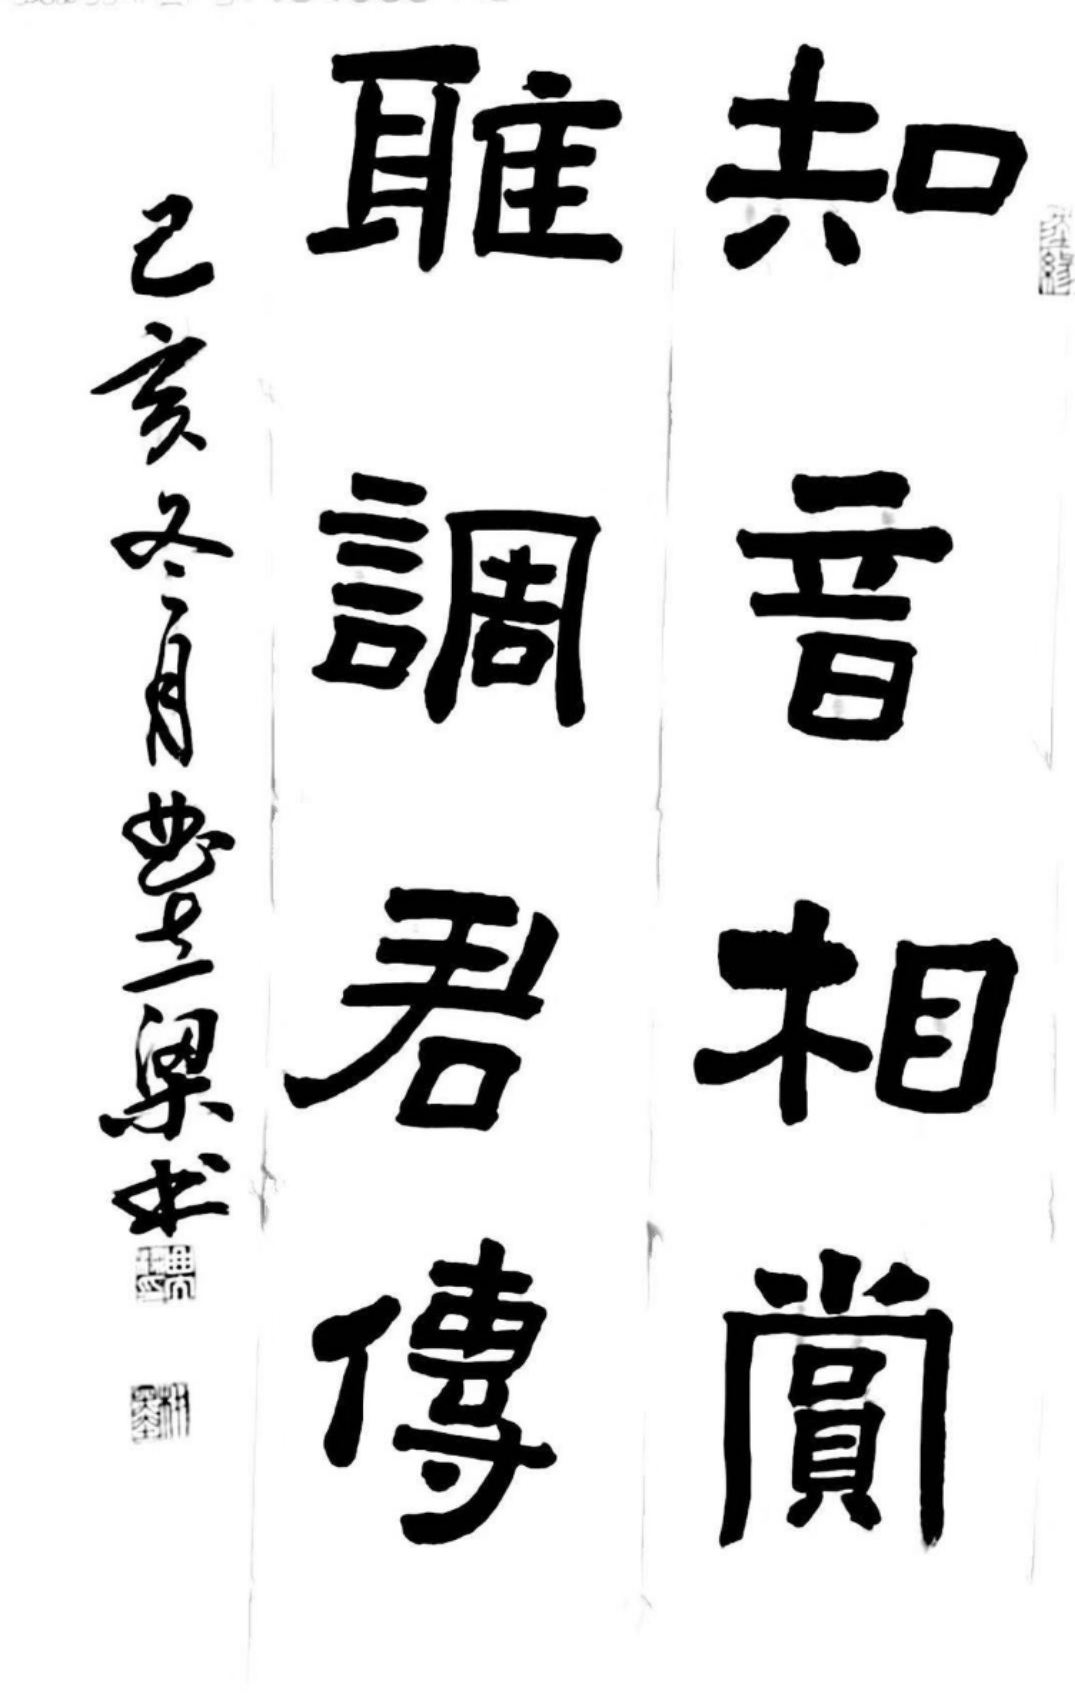 墨緣
知音相賞
雅調君傳
己亥冬月梁书